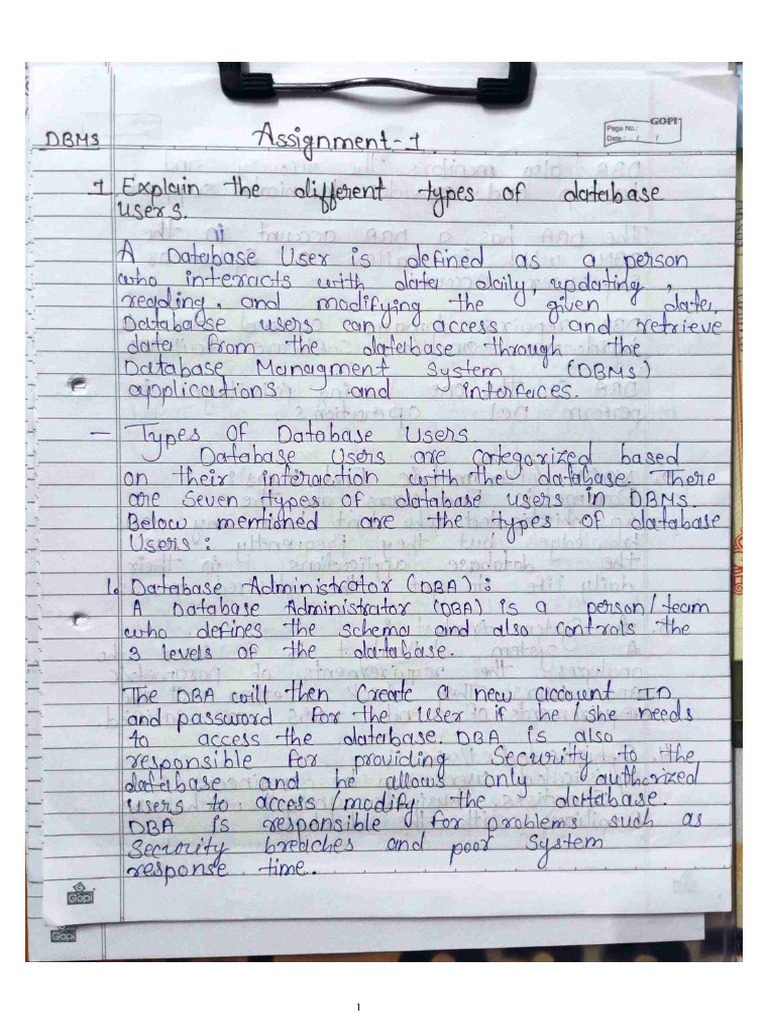 DBMS
Assignment-1.
GOPI
Page No.:
Date: / /
1 Explain the different types of database
users.
A Database User is defined as a person
who interacts with data daily, updating,
reading, and modifying the given data.
Database users can access and retrieve
data from the database through the
Database Managment System (DBMS)
applications and interfaces.
- Types of Database Users
Database Users are categorized based
on their interaction with the database. There
are seven types of database users in DBMS.
Below mentioned are the types of database
users:
1. Database Administrator (DBA):
A Database Administrator (DBA) is a person/team
who defines the schema and also controls the
3 levels of the database.
The DBA will then create a new account ID
and password for the user if he/she needs
to access the database. DBA is also
responsible for providing security to the
database and he allows only authorized
users to access/modify the database.
DBA is responsible for problems such as
security breaches and poor system
response time.
Gopi
Gopi
1